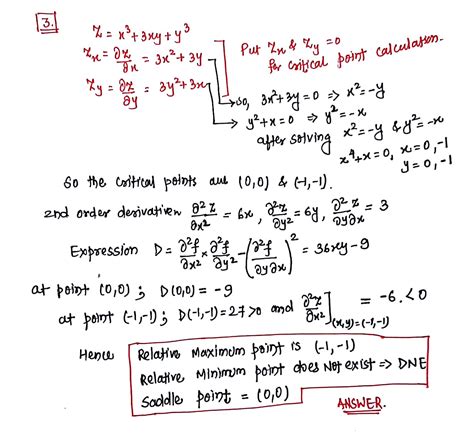 3.
Z = x³+3xy+y³
Zx = ∂z/∂x = 3x²+3y
Zy = ∂z/∂y = 3y²+3x
Put Zx & Zy = 0
for critical point calculation.
→ so, 3x²+3y=0 ⇒ x²=-y
→ y²+x=0 ⇒ y²=-x
after solving x²=-y & y²=-x
x⁴+x=0, x=0,-1
y=0,-1
So the critical points are (0,0) & (-1,-1).
2nd order derivative ∂²z/∂x² = 6x, ∂²z/∂y² = 6y, ∂²z/∂y∂x = 3
Expression D = ∂²f/∂x² × ∂²f/∂y² - (∂²f/∂y∂x)² = 36xy-9
at point (0,0); D(0,0) = -9
at point (-1,-1); D(-1,-1)=27>0 and ∂²z/∂x²](x,y)=(-1,-1) = -6.<0
Hence
Relative Maximum point is (-1,-1)
Relative Minimum point does Not exist ⇒ DNE
Saddle point = (0,0)
ANSWER.